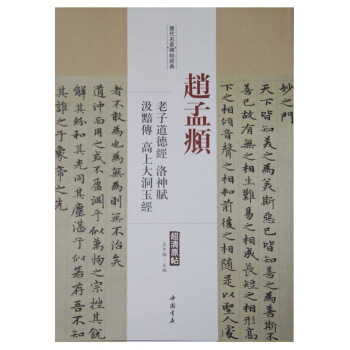 歷代名家碑帖經典
趙孟頫
老子道德經 洛神賦
汲黯傳 高上大洞玉經
超清原帖
王冬梅 主編
中國書店
妙之門
天下皆知美之為美斯惡已皆知善之為善斯不
善已故有無之相生難易之相成長短之相形高下
之相傾音聲之相和前後之相隨是以聖人處
者不敢為也為無為則無不治矣
道沖而用之或不盈淵乎似萬物之宗挫其銳
解其紛和其光同其塵湛乎似或存吾不知
其誰之子象帝之先